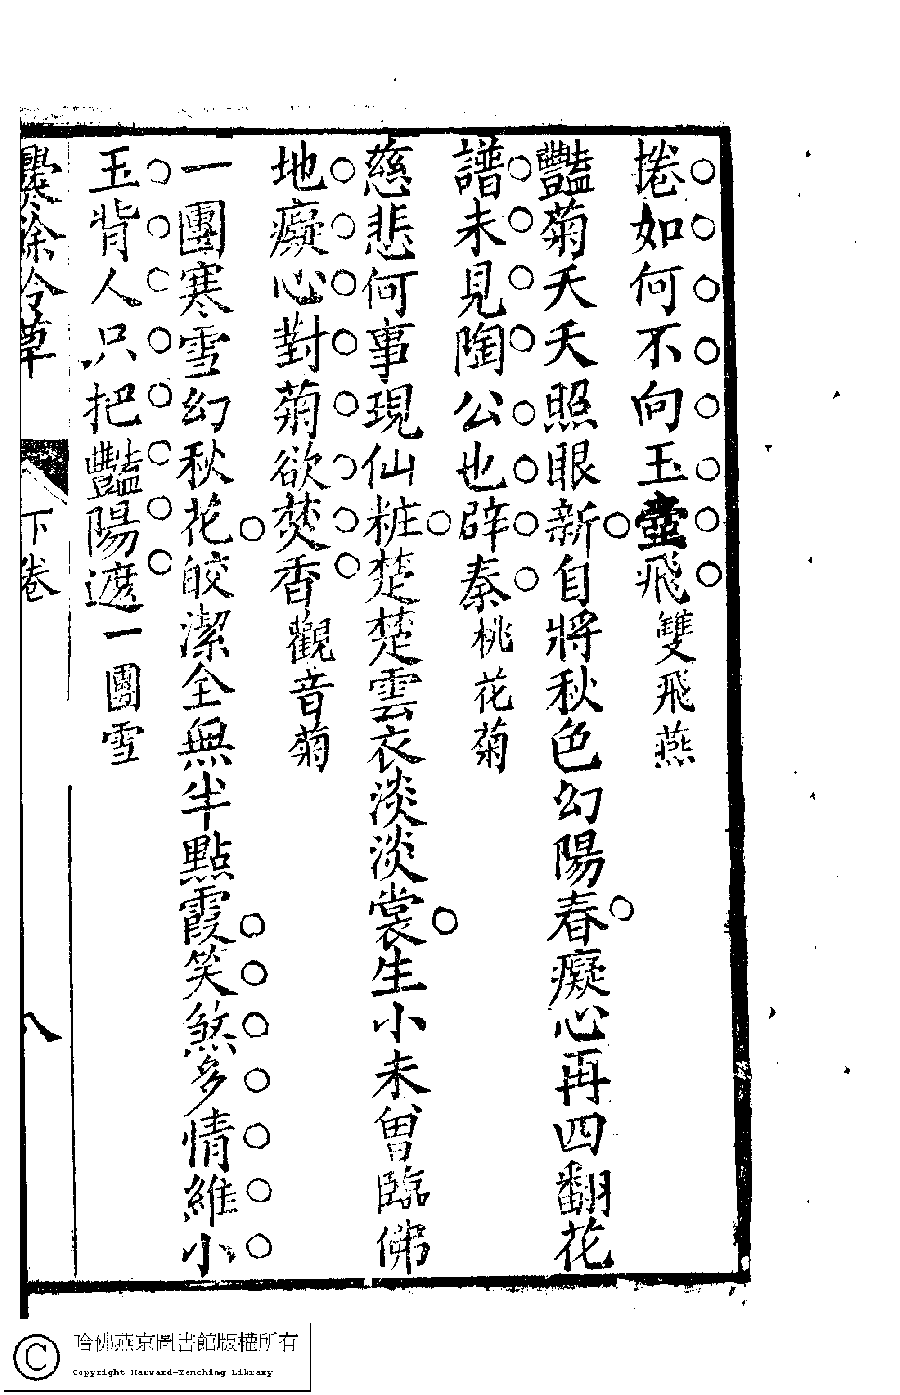 捲如何不向玉壷飛雙飛燕
豔菊夭夭照眼新自將秋色幻陽春癡心再四翻花
譜未見陶公也辟秦桃花菊
慈悲何事現仙粧楚楚雲衣淡淡裳生小未曾臨佛
地癡心對菊欲焚香觀音菊
一團寒雪幻秋花皎潔全無半點霞笑煞多情維小
玉背人只把豔陽遮一團雪
爨餘吟草
下卷
八
哈佛燕京圖書館版權所有
Copyright Harvard-Yenching Library